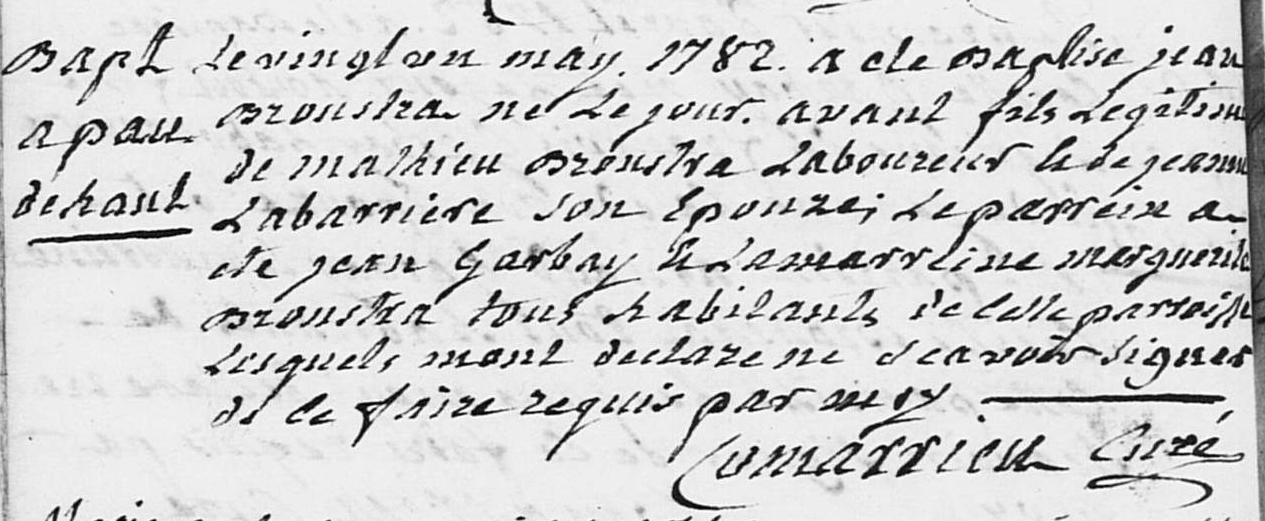 Bapt
a pau
dehaut
Le vingt un may. 1782. a ete Baptise jean
Broustra ne Le jour. avant fils Legitime
de mathieu Broustra Laboureur & de jeanne
Labarriere son Epouze; Le parrein a
ete jean Garbay & La marreine marguerite
Broustra tous habitants de Cette parroisse
Lesquels mont declare ne Scavoir Signer
de ce faire requis par moy.
Cumarrieu Curé